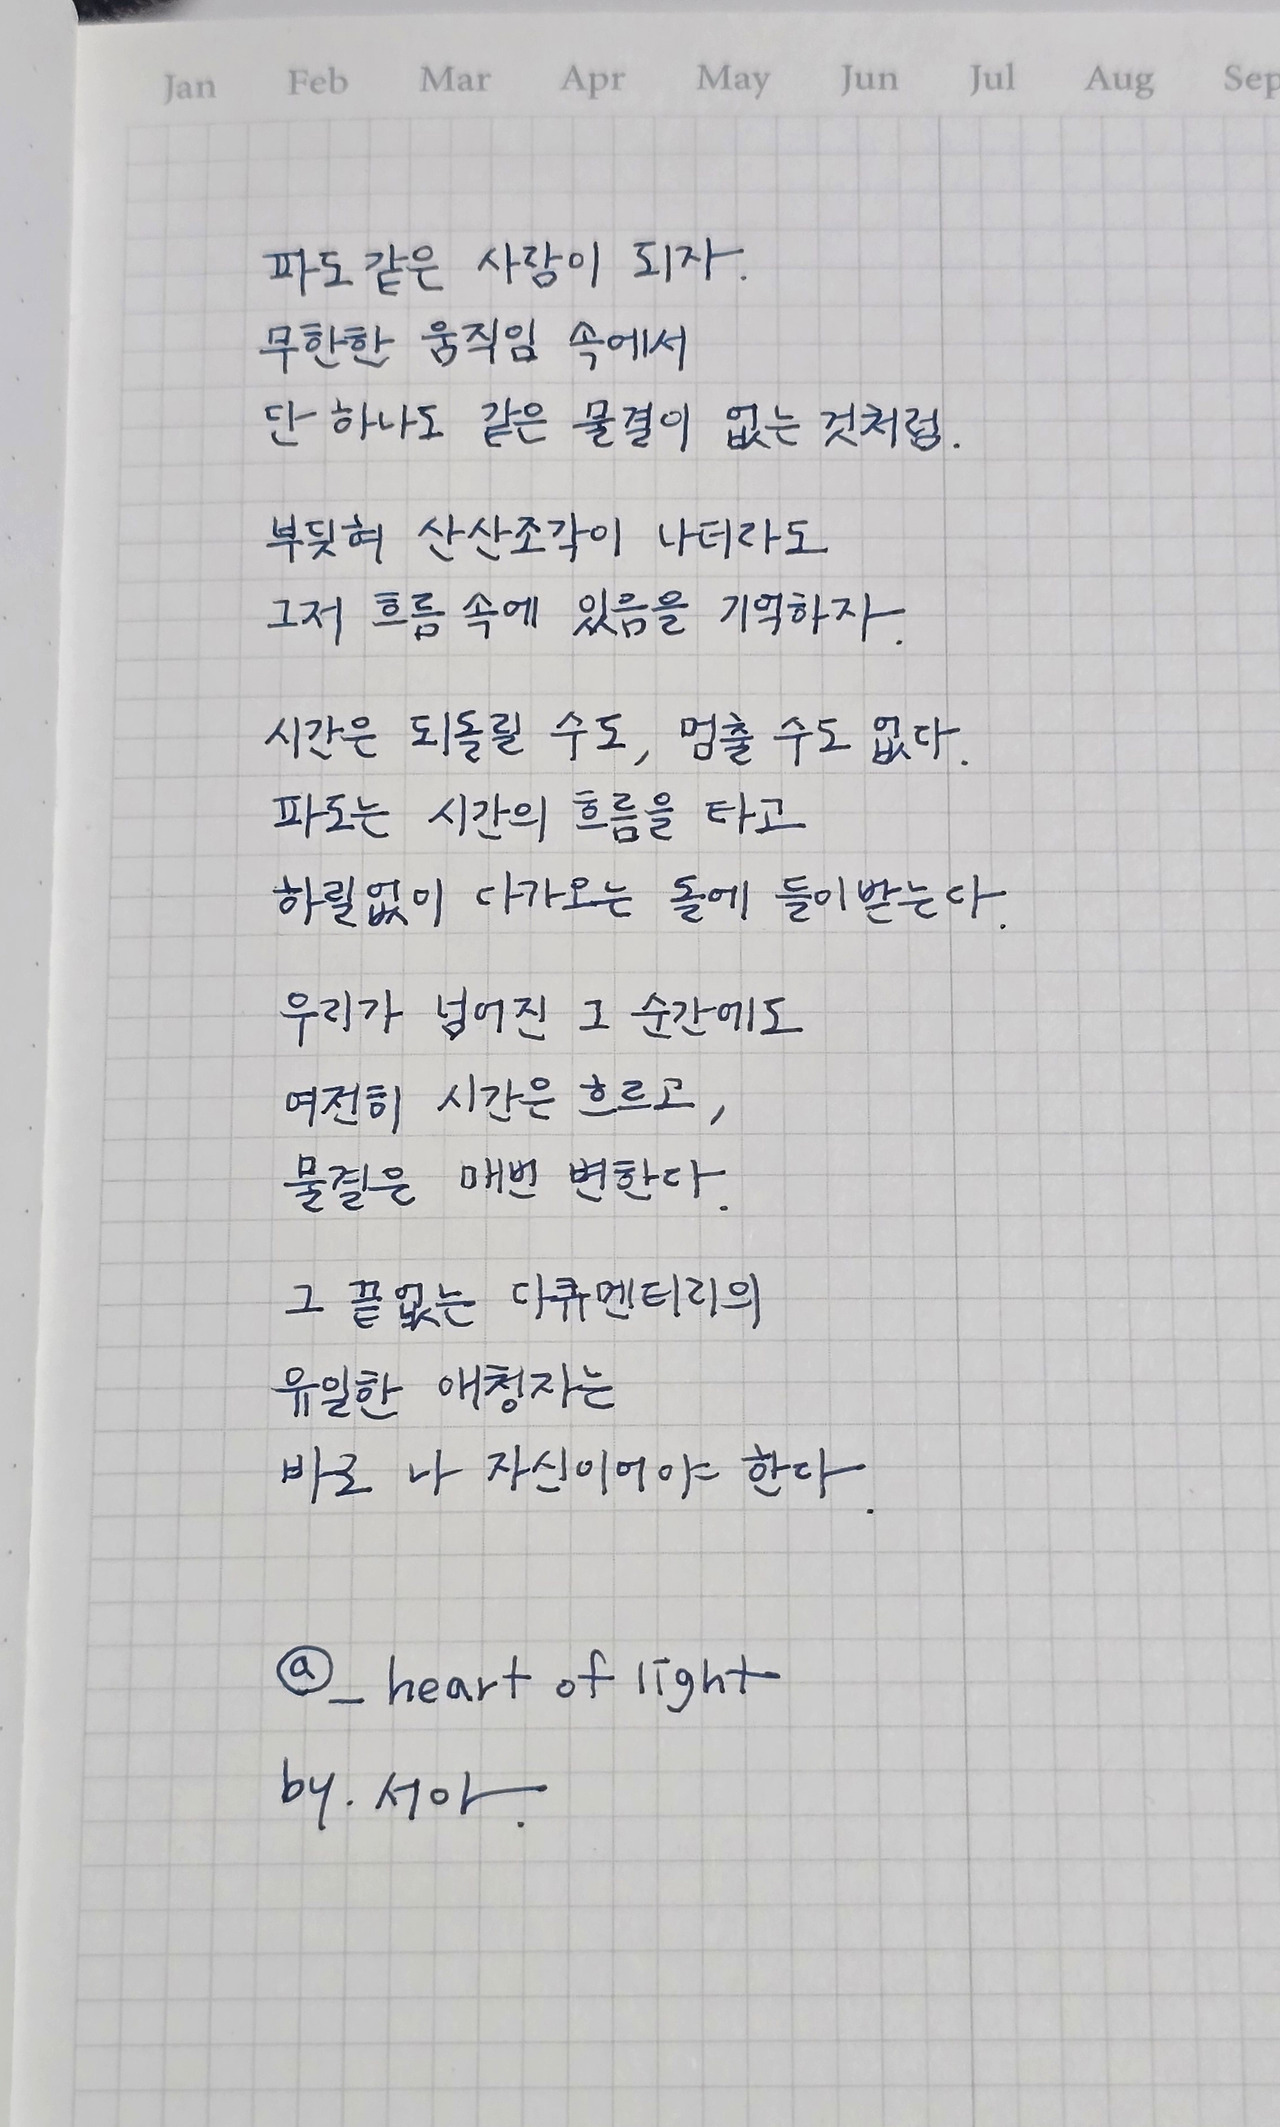 Jan Feb Mar Apr May Jun Jul Aug Sep
파도 같은 사람이 되자.
무한한 움직임 속에서
단 하나도 같은 물결이 없는 것처럼.
부딪혀 산산조각이 나더라도
그저 흐름 속에 있음을 기억하자.
시간은 되돌릴 수도, 멈출 수도 없다.
파도는 시간의 흐름을 타고
하릴없이 다가오는 돌에 들이받는다.
우리가 넘어진 그 순간에도
여전히 시간은 흐르고,
물결은 매번 변한다.
그 끝없는 다큐멘터리의
유일한 애청자는
바로 나 자신이어야 한다.
@_ heart of light
by. 서아.